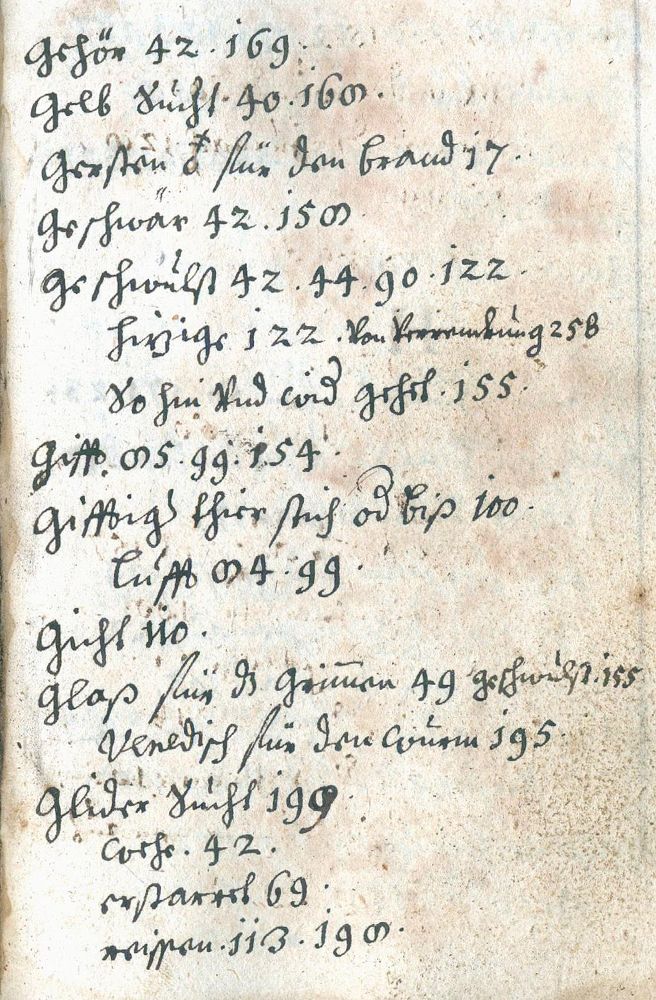 Gehör 42. 169.
Gelb Sucht. 40. 168.
Gersten für den brand 17.
Geschwär 42. 158
Geschwulst 42. 44. 90. 122.
hizige 122. Von Verrenckung 258
So hin Vnd wid gehet. 155.
Gifft. 85. 99. 154.
Gifftig thier stich od biß 100.
lufft 84. 99.
Gicht 110.
Glaß für dz Grimmen 49 geschwulst. 155
Venedisch für den wurm 195.
Glider Sucht 199
wehe. 42.
erstarret 69.
reissen. 113. 198.